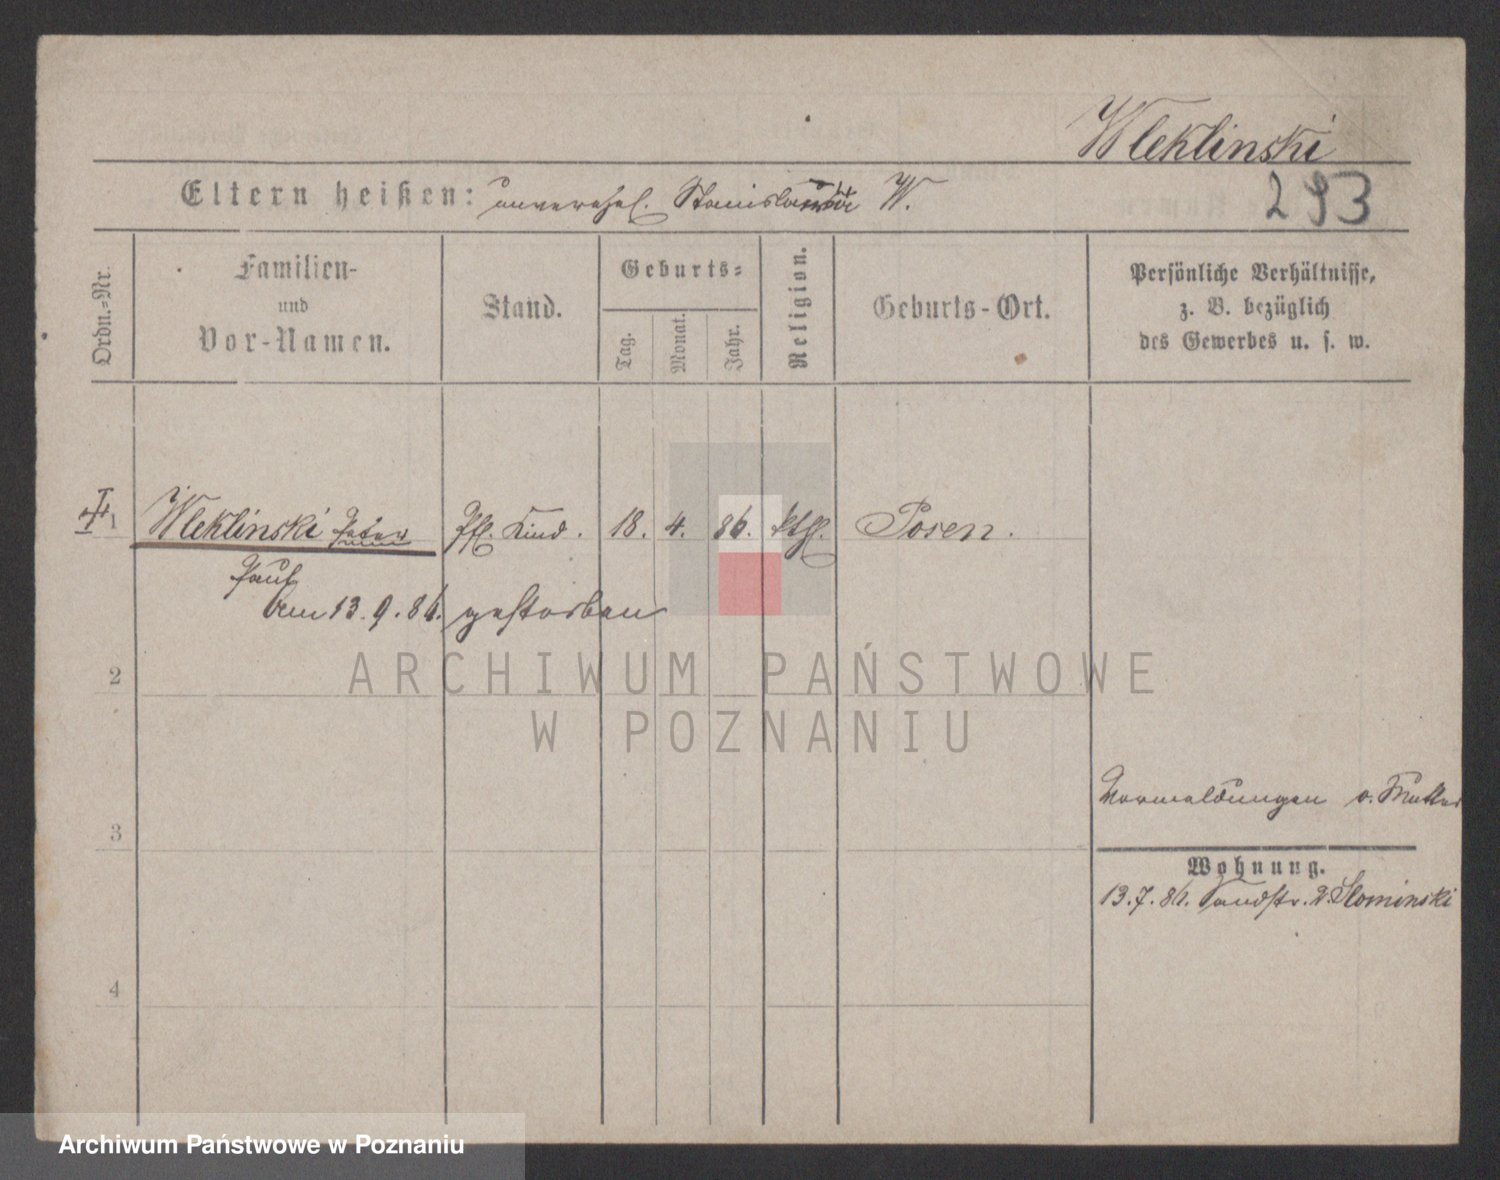 Wleklinski
Eltern heißen: unverehel. Stanislawa W.
293
Ordn.-Nr.
Familien-
und
Vor-Namen.
Stand.
Geburts-
Tag.
Monat.
Jahr.
Religion.
Geburts-Ort.
Persönliche Verhältnisse,
z. B. bezüglich
des Gewerbes u. s. w.
1 Wleklinski Peter Pfl. Kind. 18. 4. 86. kthl. Posen.
Paul
Am 13.9.86. gestorben
2
ARCHIWUM PAŃSTWOWE
W POZNANIU
3
Vormeldungen v. Mutter
Wohnung.
13.7.86. Sandstr. 2. Slominski
4
Archiwum Państwowe w Poznaniu